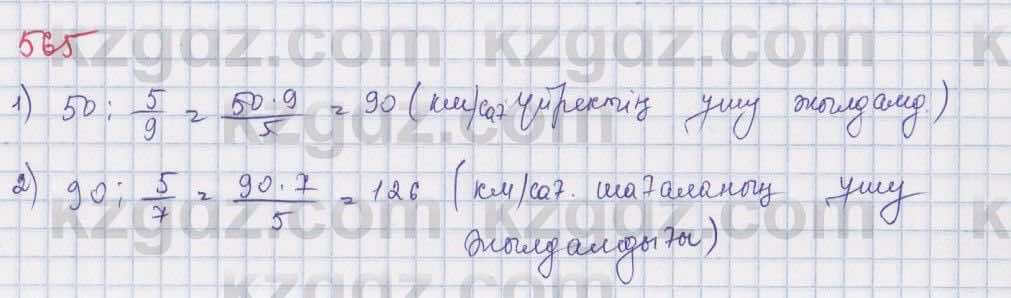 565
1) 50 : 5/9 = 50·9/5 = 90 (км/сағ үйректің ұшу жылдамд.)
2) 90 : 5/7 = 90·7/5 = 126 (км/сағ. шағаланың ұшу
жылдамдығы)
kzgdz.com kzgdz.com
kzgdz.com
kzgdz.com kzgdz.com